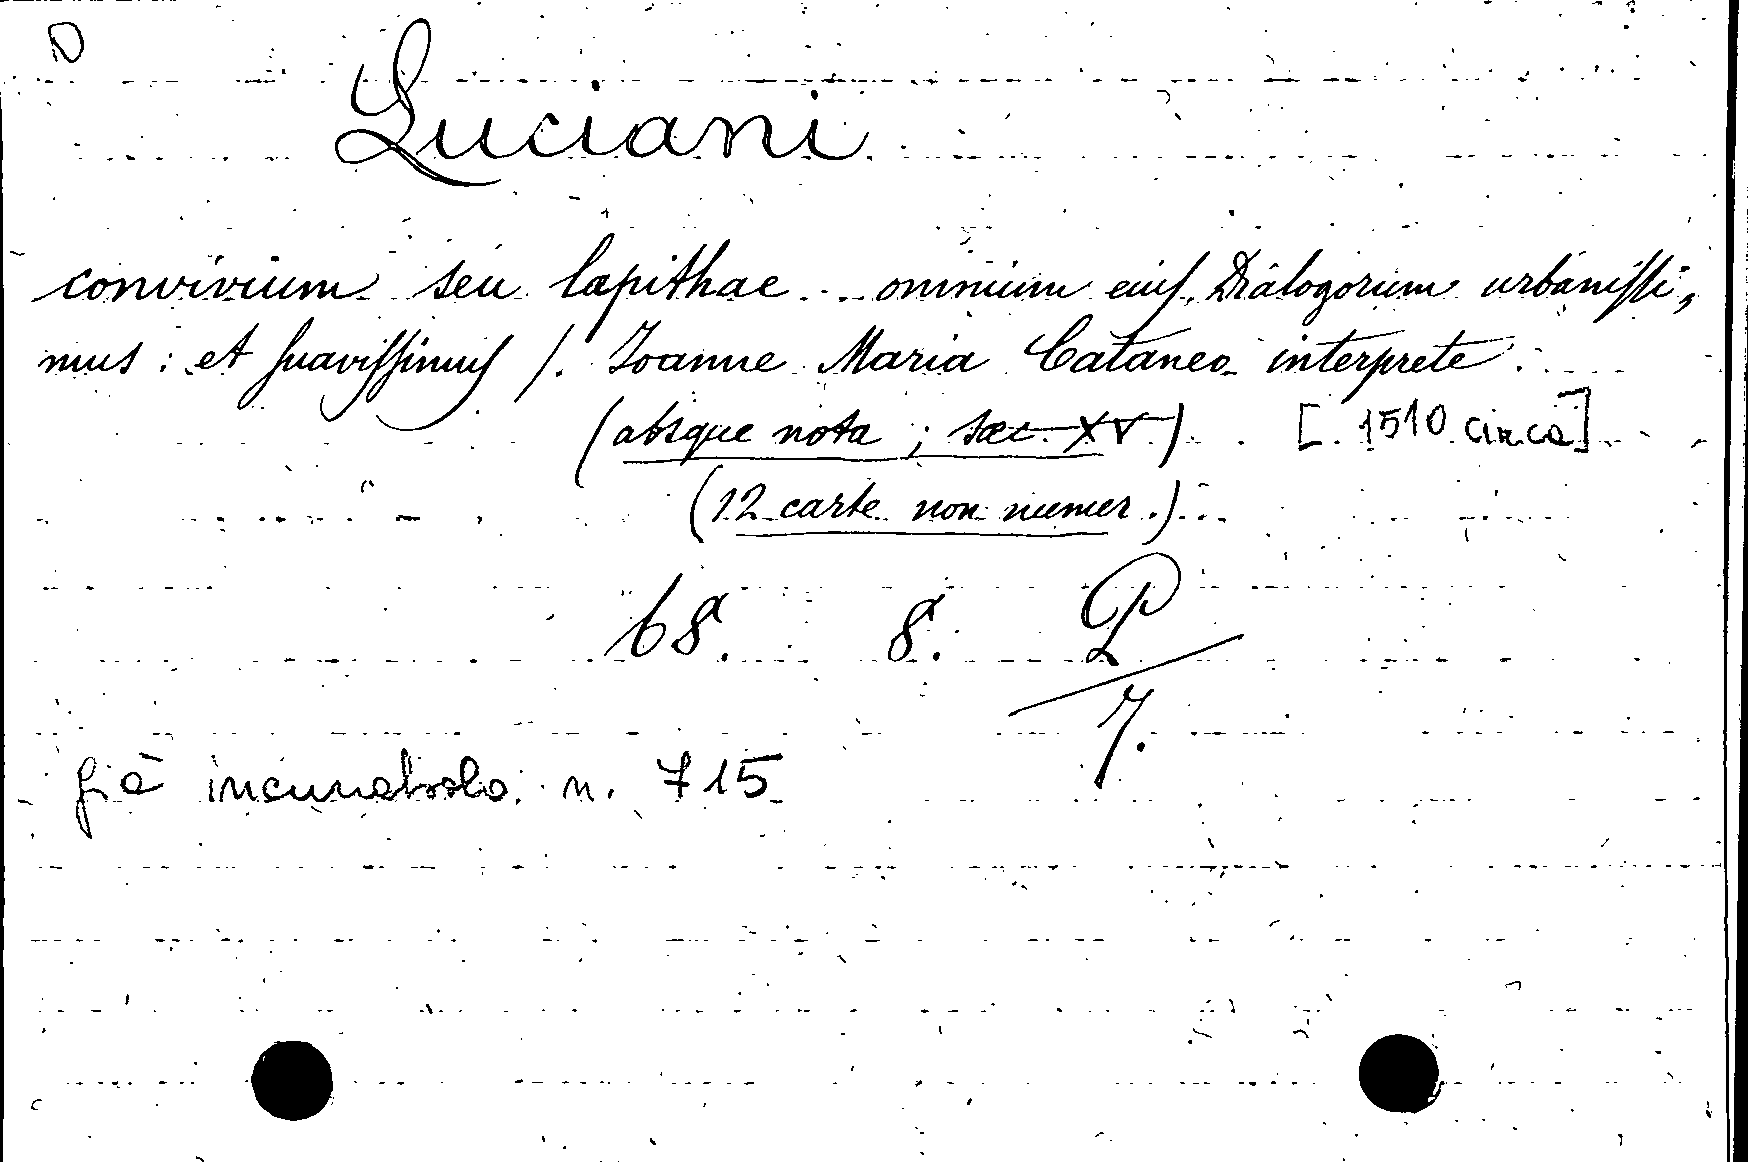 D
Luciani
convivium seu lapithae ... omnium eiuſ. Dialogorum urbaniſſi,
mus : et ſuaviſſimuſ /. Ioanne Maria Cataneo interprete.
(absque nota ; saec. XV.) [1510 circa]
(12 carte non numer.)
68. 8. P
7.
già incunabolo n. 715